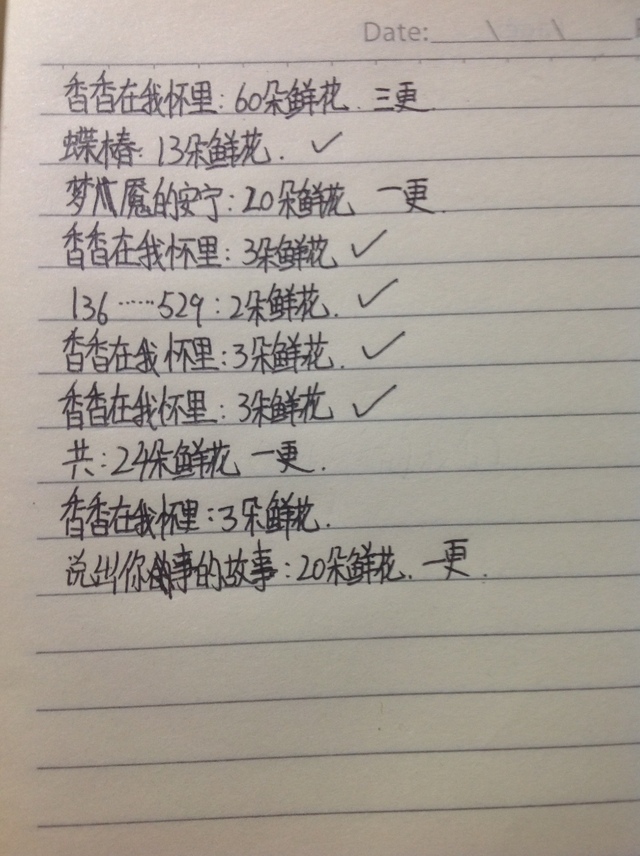 Date:
香香在我怀里:60朵鲜花. 三更.
蝶椿:13朵鲜花.✓
梦魇的安宁:20朵鲜花. 一更.
香香在我怀里:3朵鲜花✓
136……529:2朵鲜花.✓
香香在我怀里:3朵鲜花.✓
香香在我怀里:3朵鲜花✓
共:24朵鲜花 一更.
香香在我怀里:3朵鲜花.
说出你的故事:20朵鲜花. 一更.